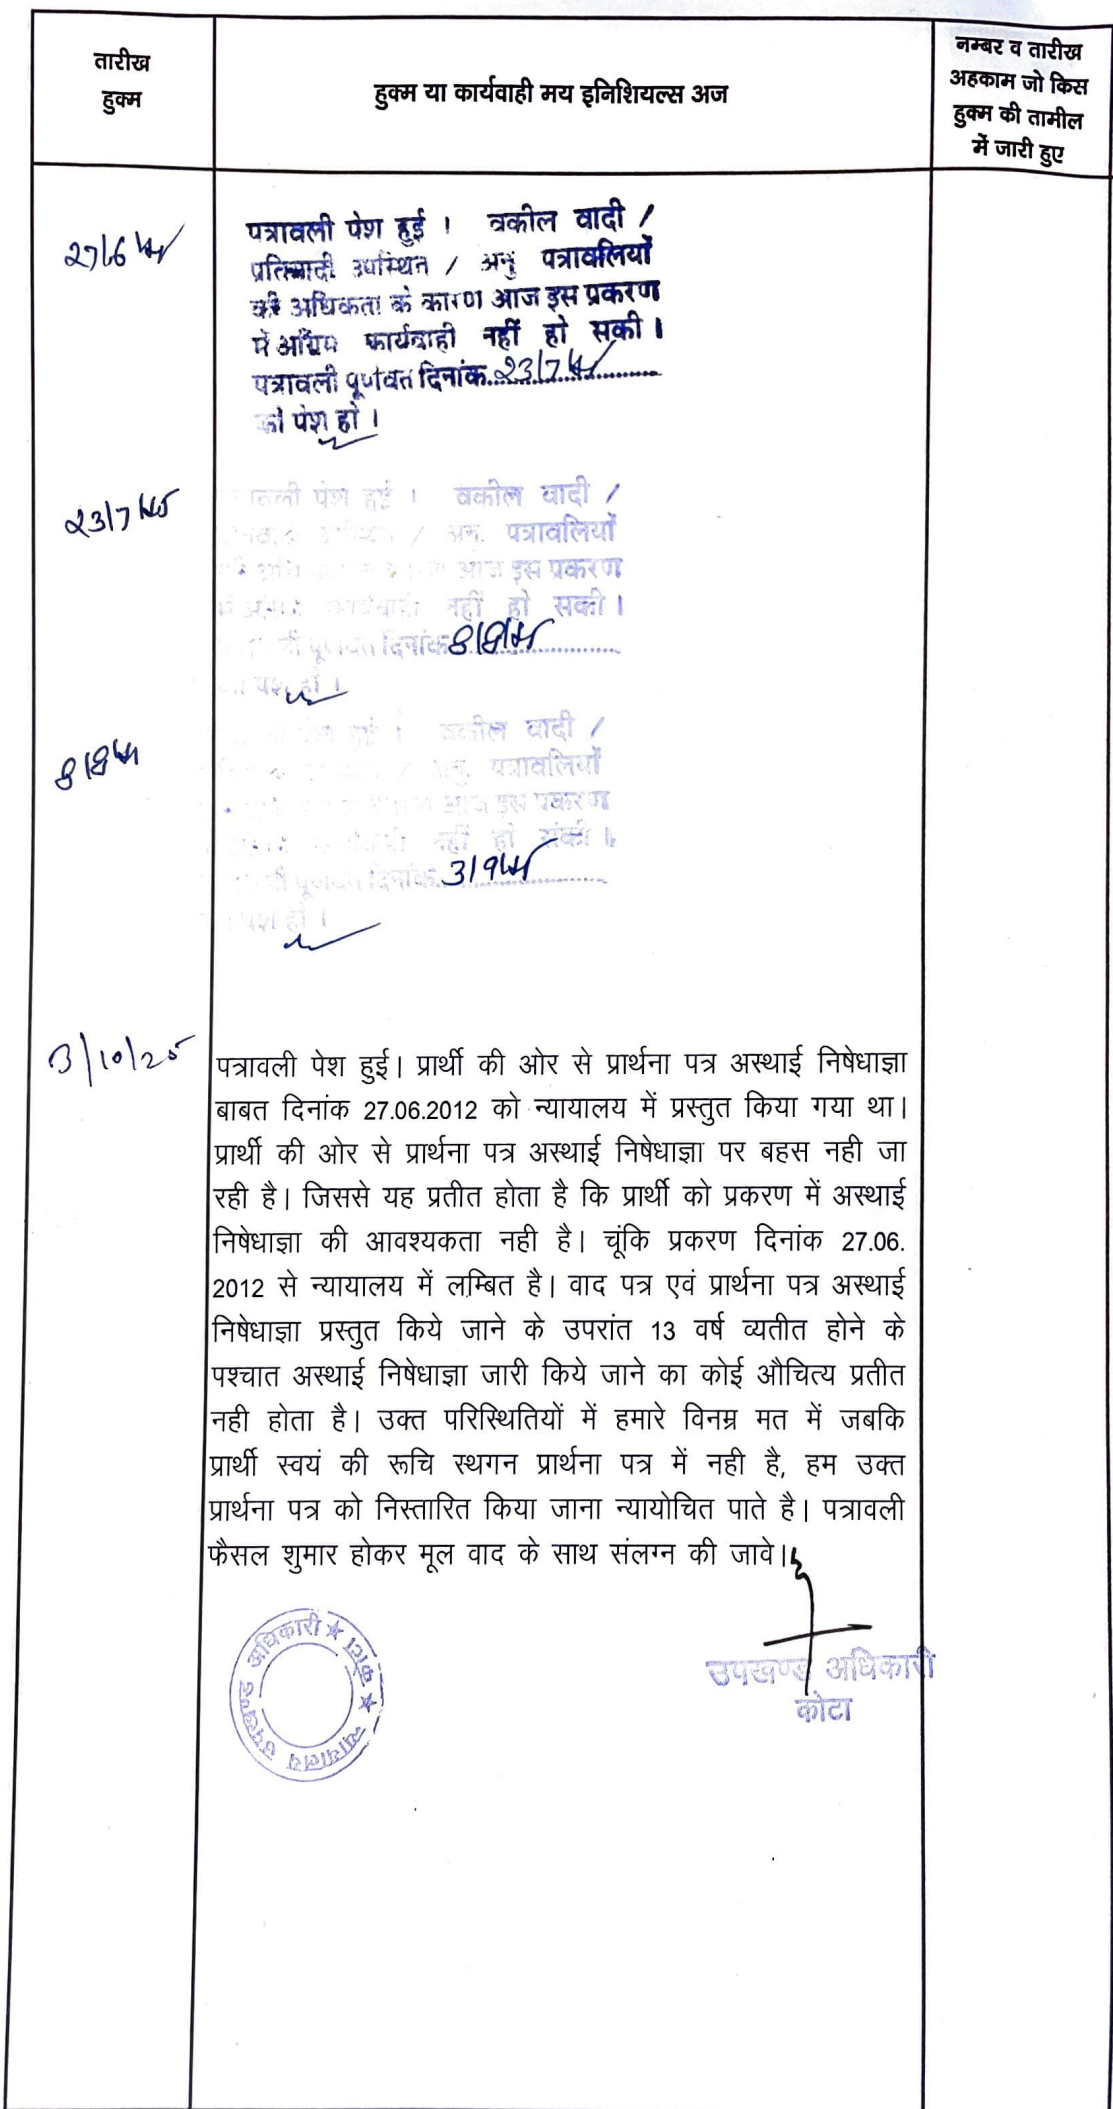 तारीख
हुक्म
हुक्म या कार्यवाही मय इनिशियल्स अज
नम्बर व तारीख
अहकाम जो किस
हुक्म की तामील
में जारी हुए
27/6
पत्रावली पेश हुई । वकील वादी /
प्रतिवादी उपस्थित / अनु पत्रावलियों
की अधिकता के कारण आज इस प्रकरण
में अग्रिम कार्यवाही नहीं हो सकी ।
पत्रावली पूर्णवत दिनांक 23/7
को पेश हो ।
23/7
पेश हुई । वकील वादी /
/ अनु. पत्रावलियों
आज इस प्रकरण
नहीं हो सकी ।
दिनांक 8/8
पेश हो ।
8/8
वकील वादी /
/ अनु. पत्रावलियों
आज इस प्रकरण
नहीं हो सकी ।
दिनांक 3/9
पेश हो ।
3/10/25
पत्रावली पेश हुई। प्रार्थी की ओर से प्रार्थना पत्र अस्थाई निषेधाज्ञा
बाबत दिनांक 27.06.2012 को न्यायालय में प्रस्तुत किया गया था।
प्रार्थी की ओर से प्रार्थना पत्र अस्थाई निषेधाज्ञा पर बहस नही जा
रही है। जिससे यह प्रतीत होता है कि प्रार्थी को प्रकरण में अस्थाई
निषेधाज्ञा की आवश्यकता नही है। चूंकि प्रकरण दिनांक 27.06.
2012 से न्यायालय में लम्बित है। वाद पत्र एवं प्रार्थना पत्र अस्थाई
निषेधाज्ञा प्रस्तुत किये जाने के उपरांत 13 वर्ष व्यतीत होने के
पश्चात अस्थाई निषेधाज्ञा जारी किये जाने का कोई औचित्य प्रतीत
नही होता है। उक्त परिस्थितियों में हमारे विनम्र मत में जबकि
प्रार्थी स्वयं की रूचि स्थगन प्रार्थना पत्र में नही है, हम उक्त
प्रार्थना पत्र को निस्तारित किया जाना न्यायोचित पाते है। पत्रावली
फैसल शुमार होकर मूल वाद के साथ संलग्न की जावे।
न्यायालय उपखण्ड अधिकारी ★ कोटा ★
उपखण्ड अधिकारी
कोटा